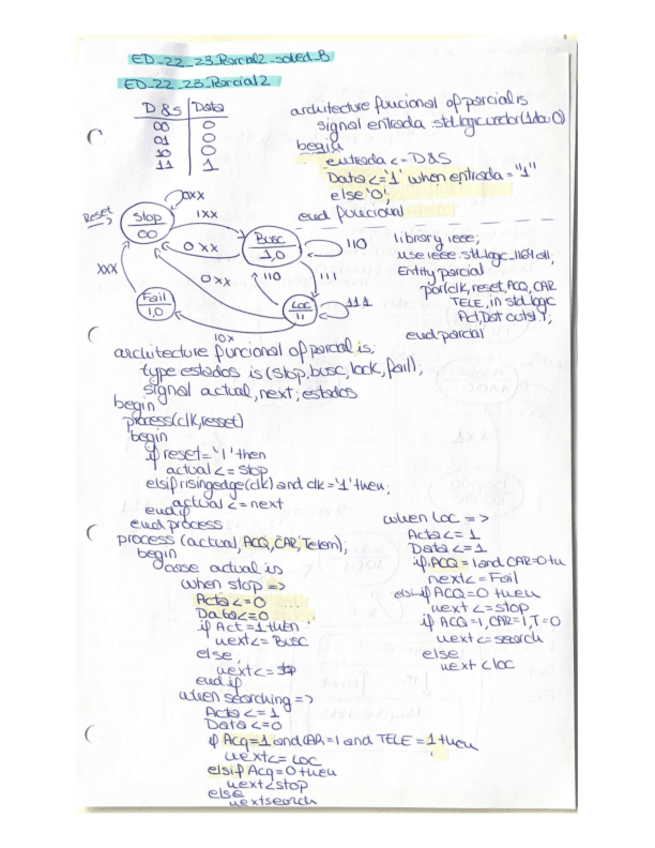 ED_22_23_Parcial2_soled_B
ED_22_23_Parcial2
D & S | Data
00 0
01 0
10 0
11 1
architecture funcional of parcial is
signal entrada std.logic.vector(1 do 0)
begin
entrada <= D&S
Data <= '1' when entrada = "1"
else '0';
end funcional
Reset
0xx
Stop
00
1xx
Busc
1,0
110
0xx
xxx
0xx
110
111
Fail
1,0
Loc
11
111
10x
library ieee;
use ieee.std.logic_1164.all;
Entity parcial
por(clk, reset, ACQ, CAR
TELE, in std logic
Act, Dat out sl.);
end parcial
architecture funcional of parcial is;
type estados is (stop, busc, lock, fail);
signal actual, next; estados
begin
process(clk, resset)
begin
if reset = '1' then
actual <= stop
elsif risingedge(clk) and clk = '1' then;
actual <= next
end if
end process
process (actual, ACQ, CAR, Telem);
begin
case actual is
when stop =>
Acta <= 0
Data <= 0
if Act = 1 then
next <= Busc
else,
next <= stp
end if
when searching =>
Acta <= 1
Data <= 0
if Acq = 1 and CAR = 1 and TELE = 1 then
next <= LOC
elsif Acq = 0 then
next < stop
else
next search
when LOC =>
Acta <= 1
Data <= 1
if ACQ = 1 and CAR = 0 th
next <= Fail
elsif ACQ = 0 then
next <= stop
if ACQ = 1, CAR = 1, T = 0
next <= search
else
next < loc